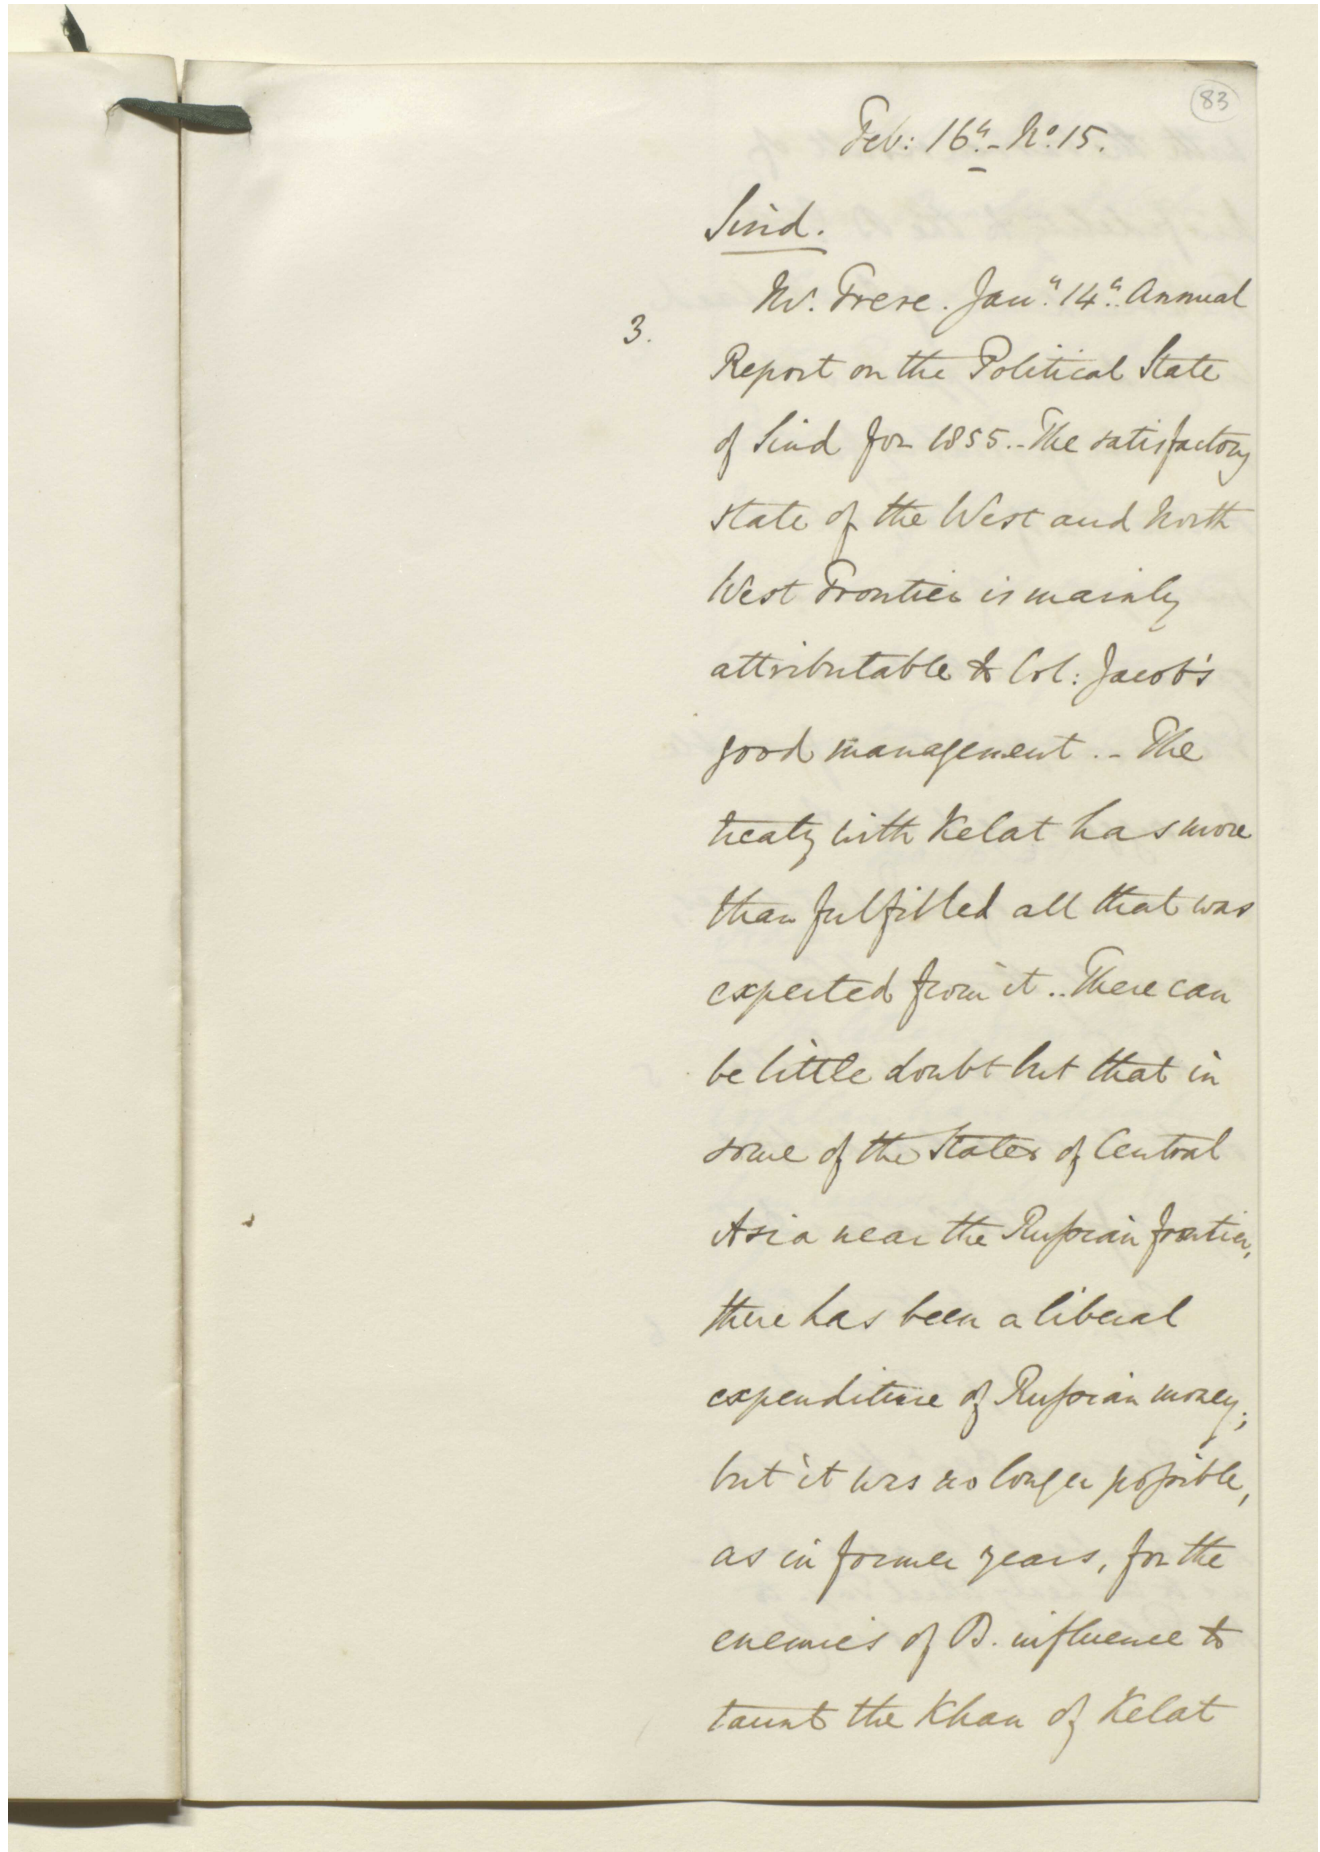 83
Feb: 16th. - No. 15.
Sind.
3.
Mr. Frere. Jany. 14th. Annual
Report on the Political State
of Sind for 1855. - The satisfactory
state of the West and North
West Frontier is mainly
attributable to Col: Jacob's
good management. - The
treaty with Kelat has more
than fulfilled all that was
expected from it. - There can
be little doubt but that in
some of the States of Central
Asia near the Russian frontier,
there has been a liberal
expenditure of Russian money;
but it was no longer possible,
as in former years, for the
enemies of B. influence to
taunt the Khan of Kelat